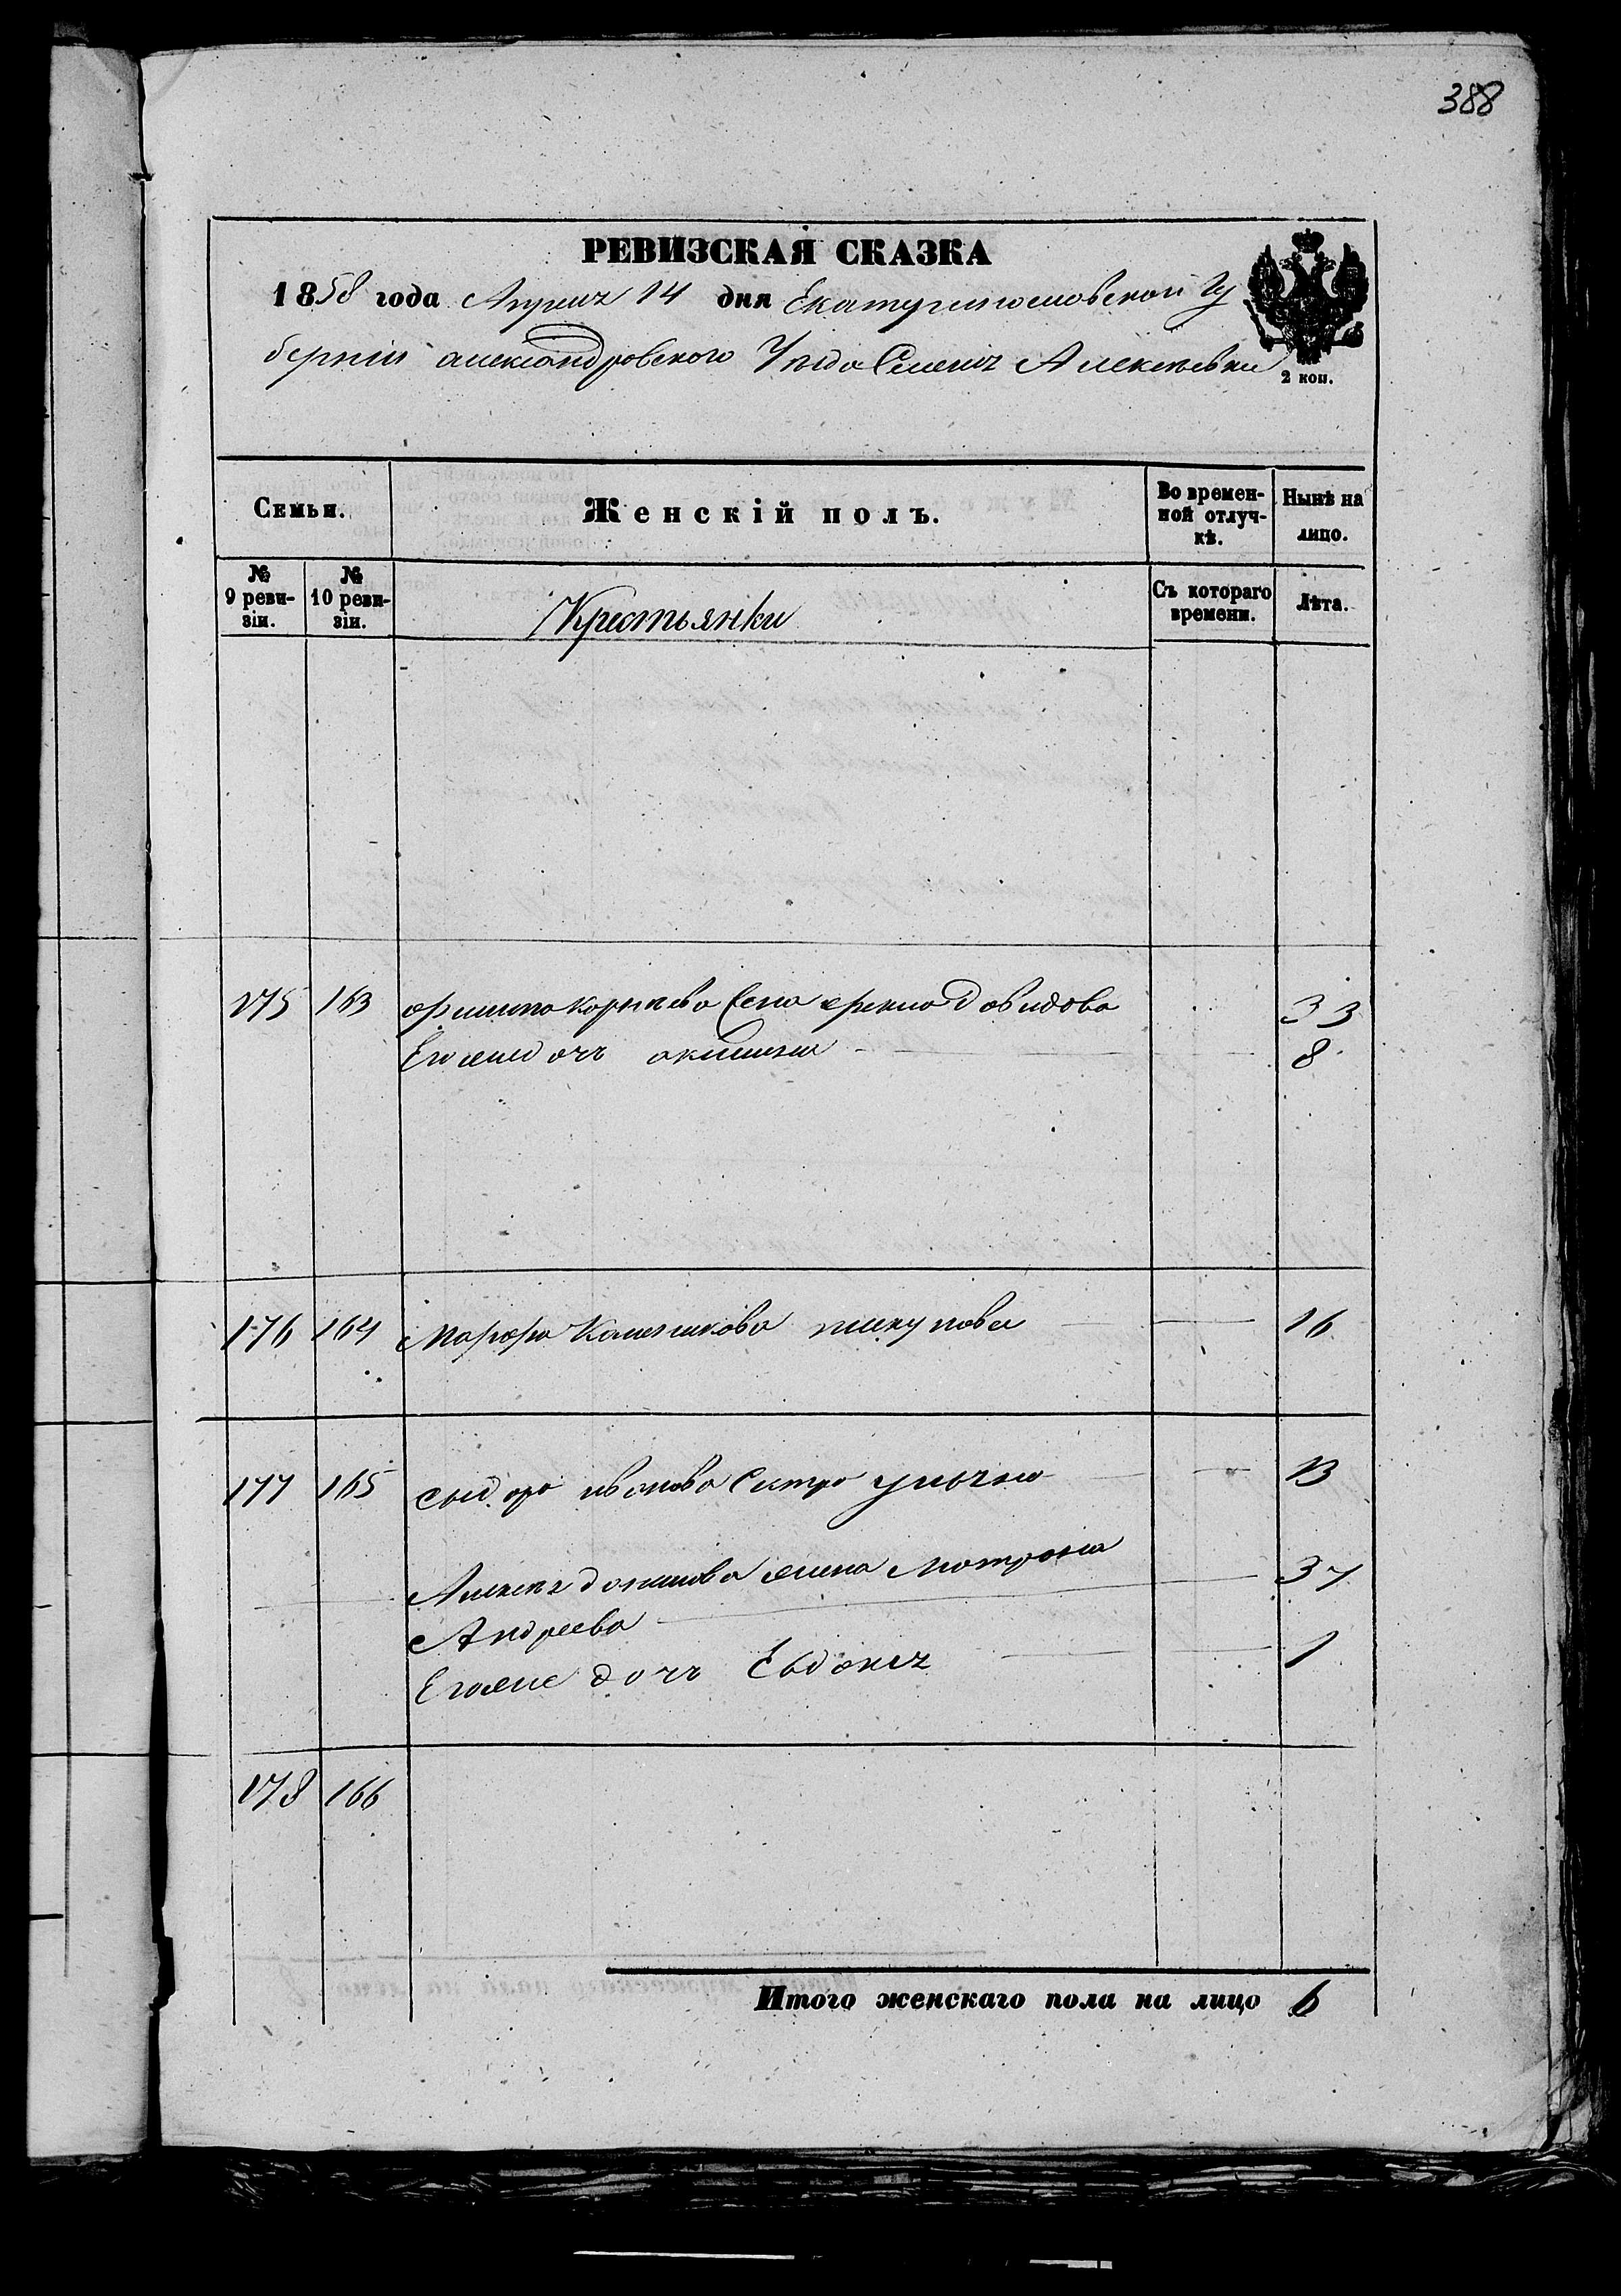 388
РЕВИЗСКАЯ СКАЗКА
1858 года Апреля 14 дня Екатеринославской Гу
бернии александровского Уезда Селения Алексеевки
2 коп.
Семьи. Женскій полъ. Во времен-ной отлуч-кѣ. Нынѣ на лицо.
№ 9 реви-зіи. № 10 реви-зіи. Крестьянки Съ котораго времени. Лѣта.
175 163 филипа корнѣева жена фекла довидова 33
Его дочь акилина 8
176 164 Марфа 16
177 165 сидора иванова сестра 13
Алексея жена Мотрона 37
Андреева
Его же дочь Евдокия 1
178 166
Итого женскаго пола на лицо 6